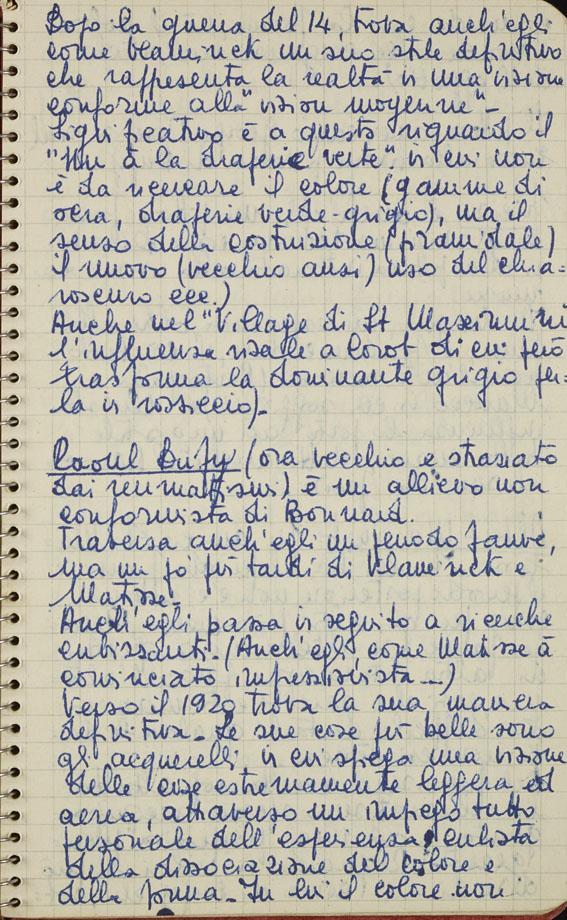 Dopo la guerra del 14, trova anch'egli
come Vlaminck un suo stile definitivo
che rappresenta la realtà in una visione
conforme alla "vision moyenne" -
Significativo è a questo riguardo il
"Nu à la draperie verte" in cui non
è da ricercare il colore (gamme di
ocra, draperie verde-grigio), ma il
senso della costruzione (piramidale)
il nuovo (vecchio anzi) uso del chia=
roscuro ecc.)
Anche nel "Village di St Maximin"
l'influenza risale a Corot di cui però
trasforma la dominante grigio per=
la in rossiccio).-
Raoul Dufy (ora vecchio e straziato
dai reumatismi) è un allievo non
conformista di Bonnard.
Traversa anch'egli un periodo fauve,
ma un po' più tardi di Vlaminck e
Matisse.
Anch'egli passa in seguito a ricerche
cubizzanti. (Anch'egli come Matisse à
cominciato impressionista...)
Verso il 1920 trova la sua maniera
definitiva. Le sue cose più belle sono
gli acquerelli in cui spiega una visione
delle cose estremamente leggera ed
aerea, attraverso un impiego tutto
personale dell'esperienza cubista
della dissociazione del colore e
della forma. In lui il colore non